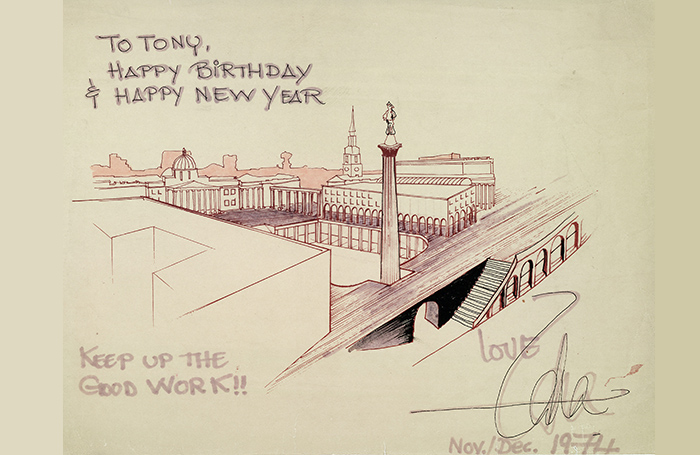 TO TONY,
HAPPY BIRTHDAY
& HAPPY NEW YEAR
KEEP UP THE
GOOD WORK!!
LOVE
Nov./Dec. 1974